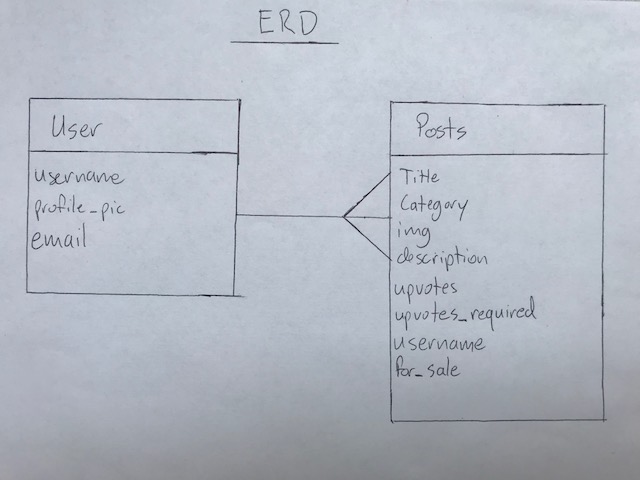 ERD
User
username
profile_pic
email
Posts
Title
Category
img
description
upvotes
upvotes_required
username
for_sale